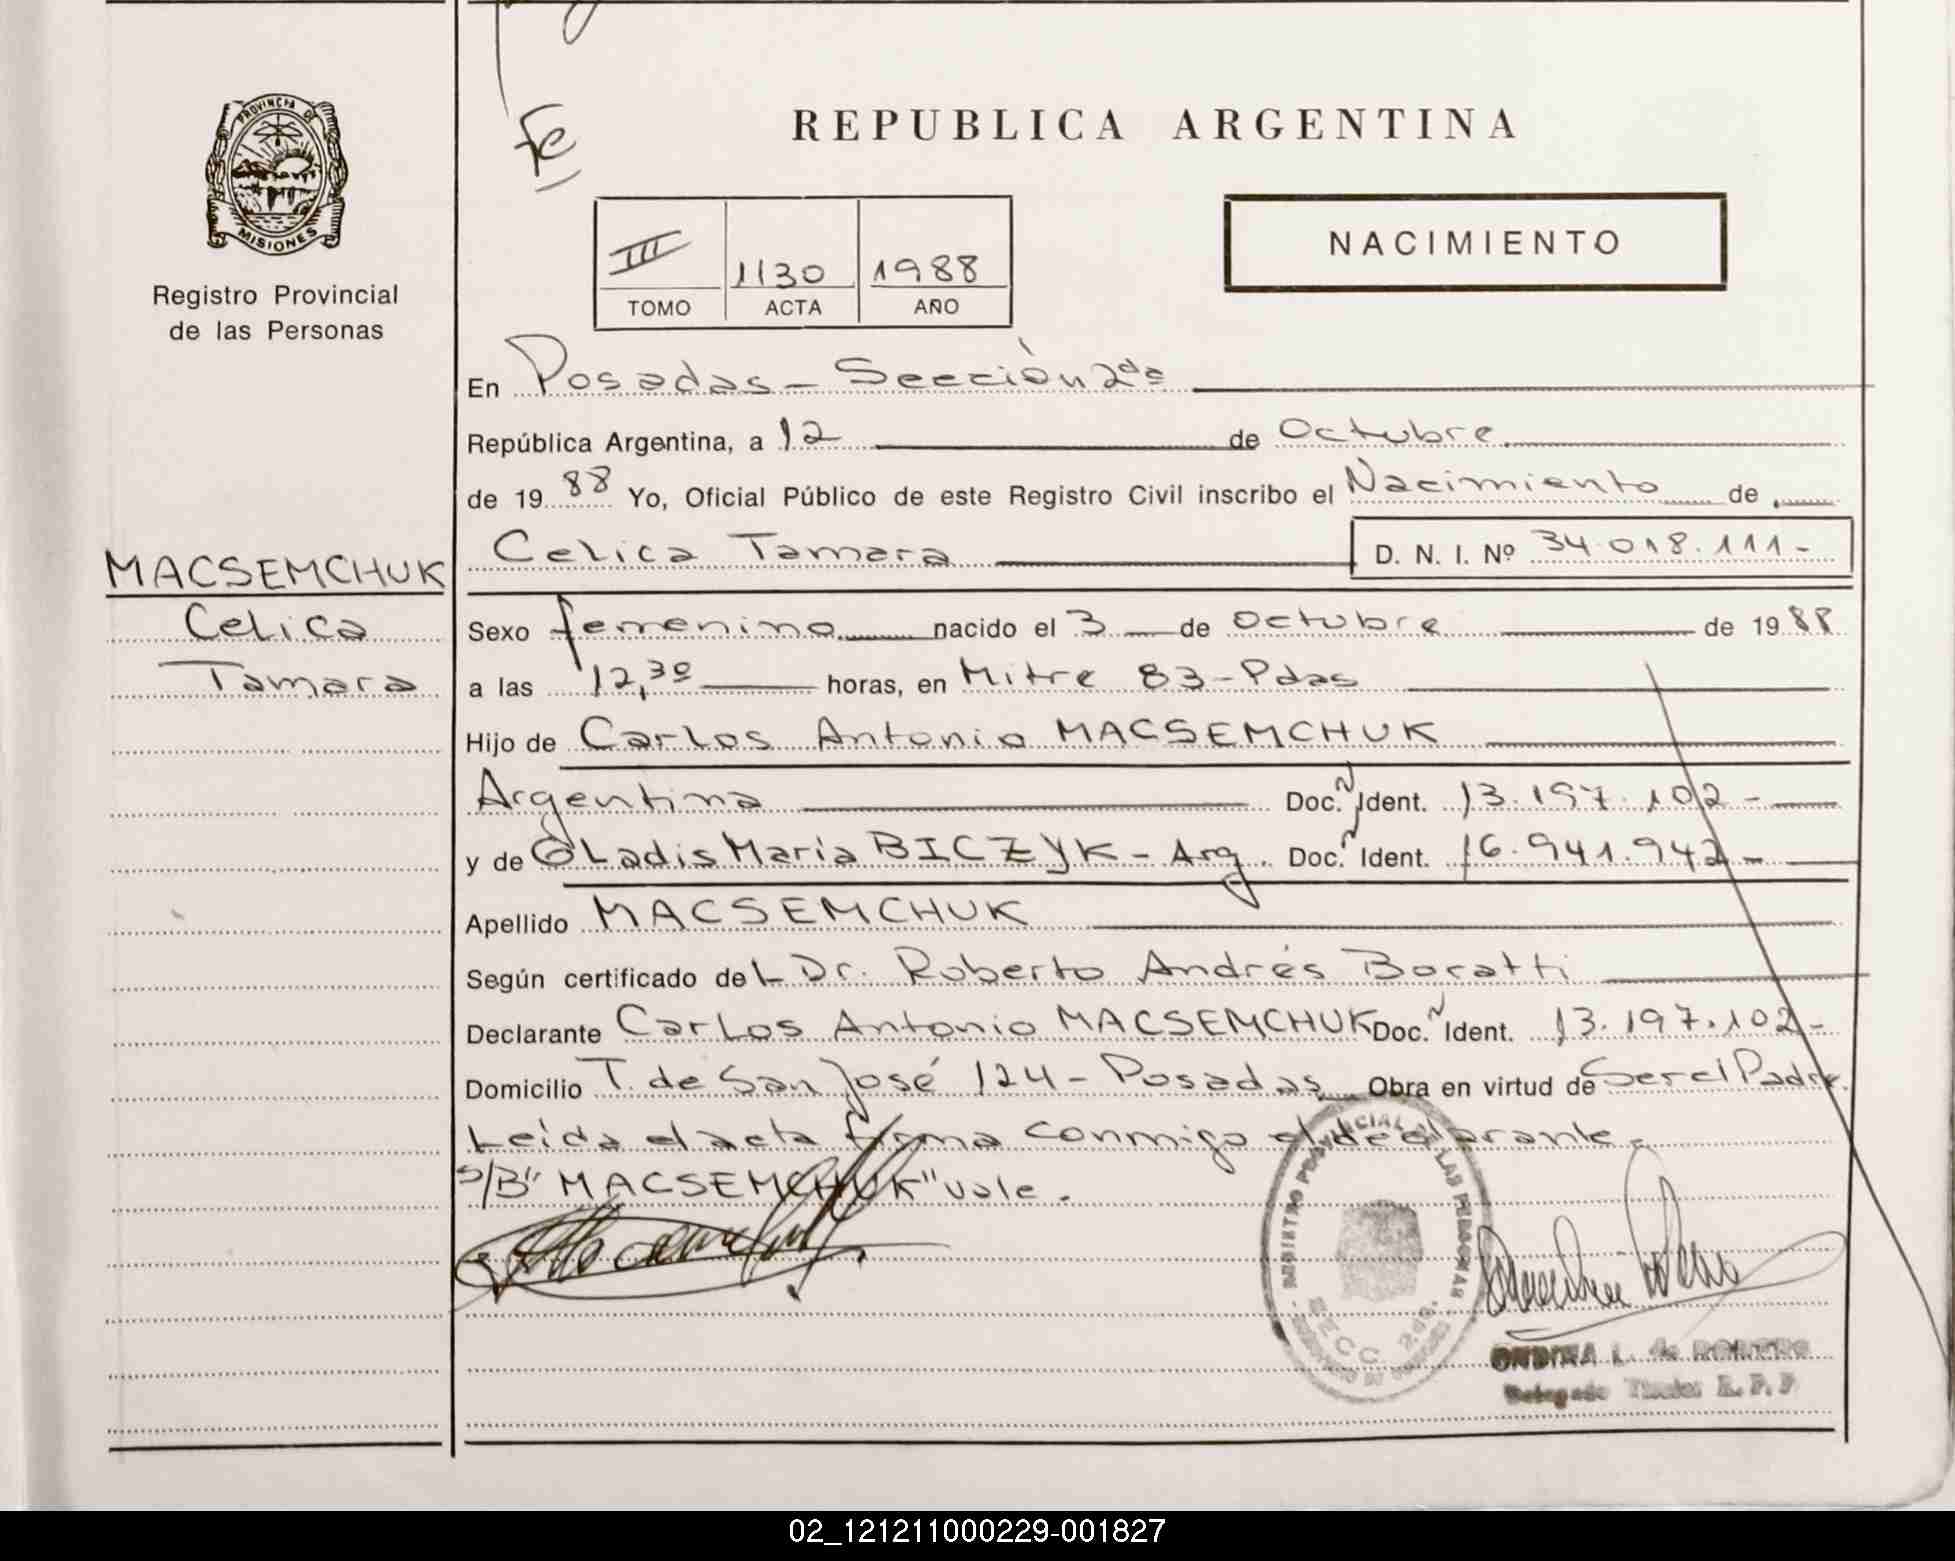 PROVINCIA DE
MISIONES
Registro Provincial
de las Personas
MACSEMCHUK
Celica
Tamara
Fe
REPUBLICA ARGENTINA
III 1130 1988
TOMO ACTA AÑO
NACIMIENTO
En Posadas - Sección 2da
República Argentina, a 12 de Octubre
de 19 88 Yo, Oficial Público de este Registro Civil inscribo el Nacimiento de
Celica Tamara D. N. I. Nº 34.018.111-
Sexo femenino nacido el 3 de Octubre de 19 88
a las 12,30 horas, en Mitre 83-Pdas
Hijo de Carlos Antonio MACSEMCHUK
Argentina Doc. Ident. 13.197.102-
y de GLadis María BICZYK - Arg. Doc. Ident. 16.941.942-
Apellido MACSEMCHUK
Según certificado del Dr. Roberto Andrés Boratti
Declarante Carlos Antonio MACSEMCHUK Doc. Ident. 13.197.102-
Domicilio T. de San José 124 - Posadas Obra en virtud de Ser el Padre.
Leída el acta firma conmigo el declarante.
S/B "MACSEMCHUK" vale.
REGISTRO PROVINCIAL DE LAS PERSONAS
SECC. 2da.
ONDINA L. de
Delegado Titular R. P. P
02_121211000229-001827